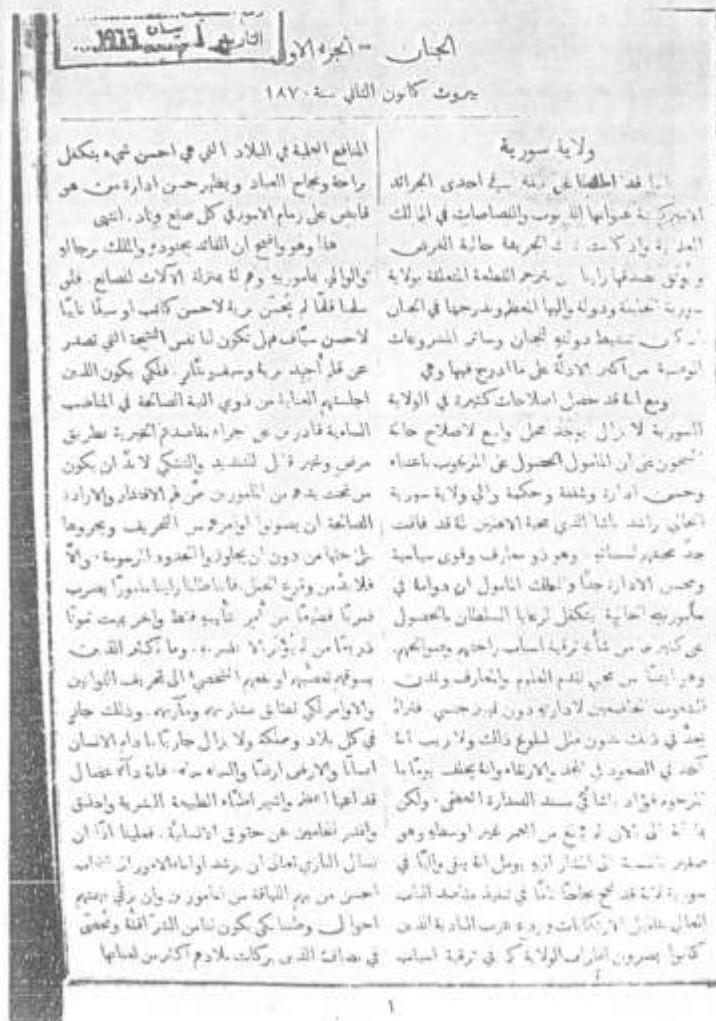 التاريخ
الجنان - الجزء الاول
بيروت كانون الثاني سنة ١٨٧٠
ولاية سورية
اننا قد اطلعنا على في احدى الجرائد
الاميركية عنوانها الحروب والقصاصات في الممالك
ولما كانت تلك الجريدة خالية الغرض
ويوثق بصدقها راينا ان نترجم القطعة المتعلقة بولاية
سورية الجليلة ودولة واليها المعظم وندرجها في الجنان
تنشيط دولته للجنان وسائر المشروعات
الوطنية من اكبر الادلة على ما ادرج فيها وهي
ومع انه قد حصل اصلاحات كثيرة في الولاية
السورية لا يزال يوجد محل واسع لاصلاح حالة
على ان المامول الحصول على المرغوب باعتناء
وحسن ادارة وشفقة وحكمة والي ولاية سورية
الحالي راشد باشا الذي محبة الاهلين له قد فاقت
جدًا محبتهم لسلفائه. وهو ذو معارف وقوى سياسية
ويحسن الادارة جدًا ولذلك المامول ان دوامه في
مأموريته الحالية يتكفل لرعايا السلطان بالحصول
على كثير من شأنه ترقية اسباب راحتهم وصوالحهم.
وهو ايضًا من محبي تقدم العلوم والمعارف وتمدن
الشعوب الخاضعين لادارته دون تمييز جنسي. فتراه
يجدّ في ذلك بدون ملل لبلوغ ذلك ولا ريب انه
آخذ في الصعود في المجد والارتقاء وانه يخلف يومًا ما
المرحوم فؤاد باشا في مسند الصدارة العظمى. ولكن
بما انه الى الان لم يبلغ من العمر غير اوسطه وهو
صغير بالنسبة الى انتشار ازره يومل انه يبقى واليًا في
سورية لانه قد نجح نجاحًا تامًا في تنفيذ مقاصد الباب
العالي بتقليل الارتكابات وردع عرب البادية الذين
كانوا يضرون اطراف الولاية كما في ترقية اسباب
المنافع المحلية في البلاد التي هي احسن شيء يتكفل
براحة ونجاح العباد ويظهر حسن ادارة من هو
قابض على زمام الامور في كل صقع وناد. انتهى
هذا وهو واضح ان القائد بجنوده والملك برجاله
والوالي بماموريه وهم له بمنزلة الآلات للصانع. فلو
سلمنا قلمًا لم يحسن بريه لاحسن كاتب او سيفًا نابيًا
لاحسن سيّاف فهل تكون لنا نفس النتيجة التي تصدر
عن قلم أُجيد بريه وسيف بتّار. فلكي يكون الذين
اجلستهم العناية من ذوي النية الصالحة في المناصب
السامية قادرين على اجراء مقاصدهم الخيرية بطريق
مرضٍ وغير قابل للتنديد والتشكي لا بدّ ان يكون
من تحت يدهم من المامورين من لهم الاقتدار والارادة
الصالحة ان يصونوا اوامرهم من التحريف ويجروها
على حقها من دون ان يجاوزوا الحدود المرسومة. والّا
فلا بدّ من وقوع الخلل. فاننا طالما راينا مامورًا يضرب
ضربًا من أُمر بتأنيبه فقط واخر يميت موتًا
ذريعًا من لم يؤمر الا بضربه. وما اكثر الذين
يسوقهم تعصبهم او نفعهم الشخصي الى تحريف القوانين
والاوامر لكي تطابق مشاربهم ومآربهم. وذلك جارٍ
في كل بلاد ومملكة ولا يزال جاريًا ما دام الانسان
انسانًا والارض ارضًا والسماء سماء. فانه دآء عضال
قد اعيا اعظم واشهر اطبّاء الطبيعة البشرية واحذق
واقدر المحامين عن حقوق الانسانية. فعلينا اذًا ان
نسال الباري تعالى ان يرشد اولياء الامور الى انتخاب
احسن من بهم اللياقة من المامورين وان يرقي بهمتهم
احوال وطننا لكي يكون لناس الشرّ اقلّه ونُحصى
في مصاف الذين بركات بلادهم اكثر من لعناتها
١